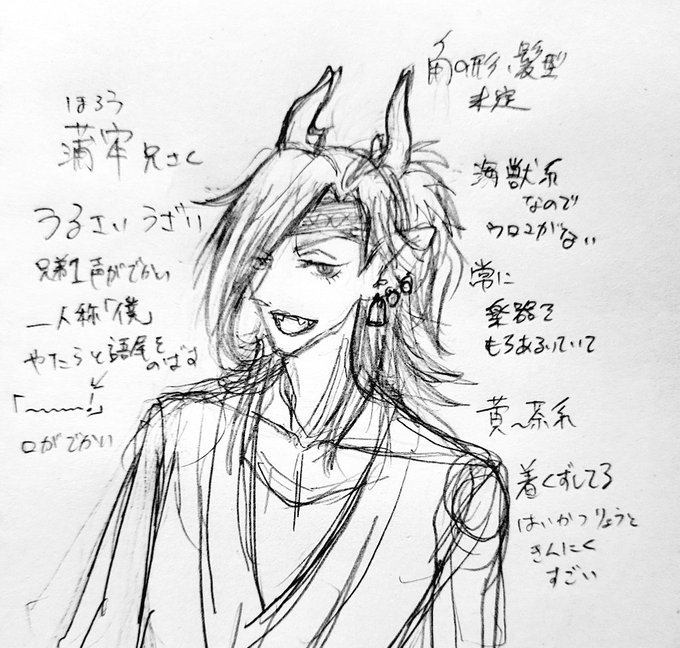 ほろう
蒲牢兄さん
うるさい うざい
兄弟1声がでかい
一人称「僕」
やたらと語尾を
のばす
「〜〜〜!」
口がでかい
角の形、髪型
未定
海獣系
なので
ウロコがない
常に
楽器を
もちあるいていて
黄〜茶系
着くずしてる
はいかつりょうと
きんにく
すごい